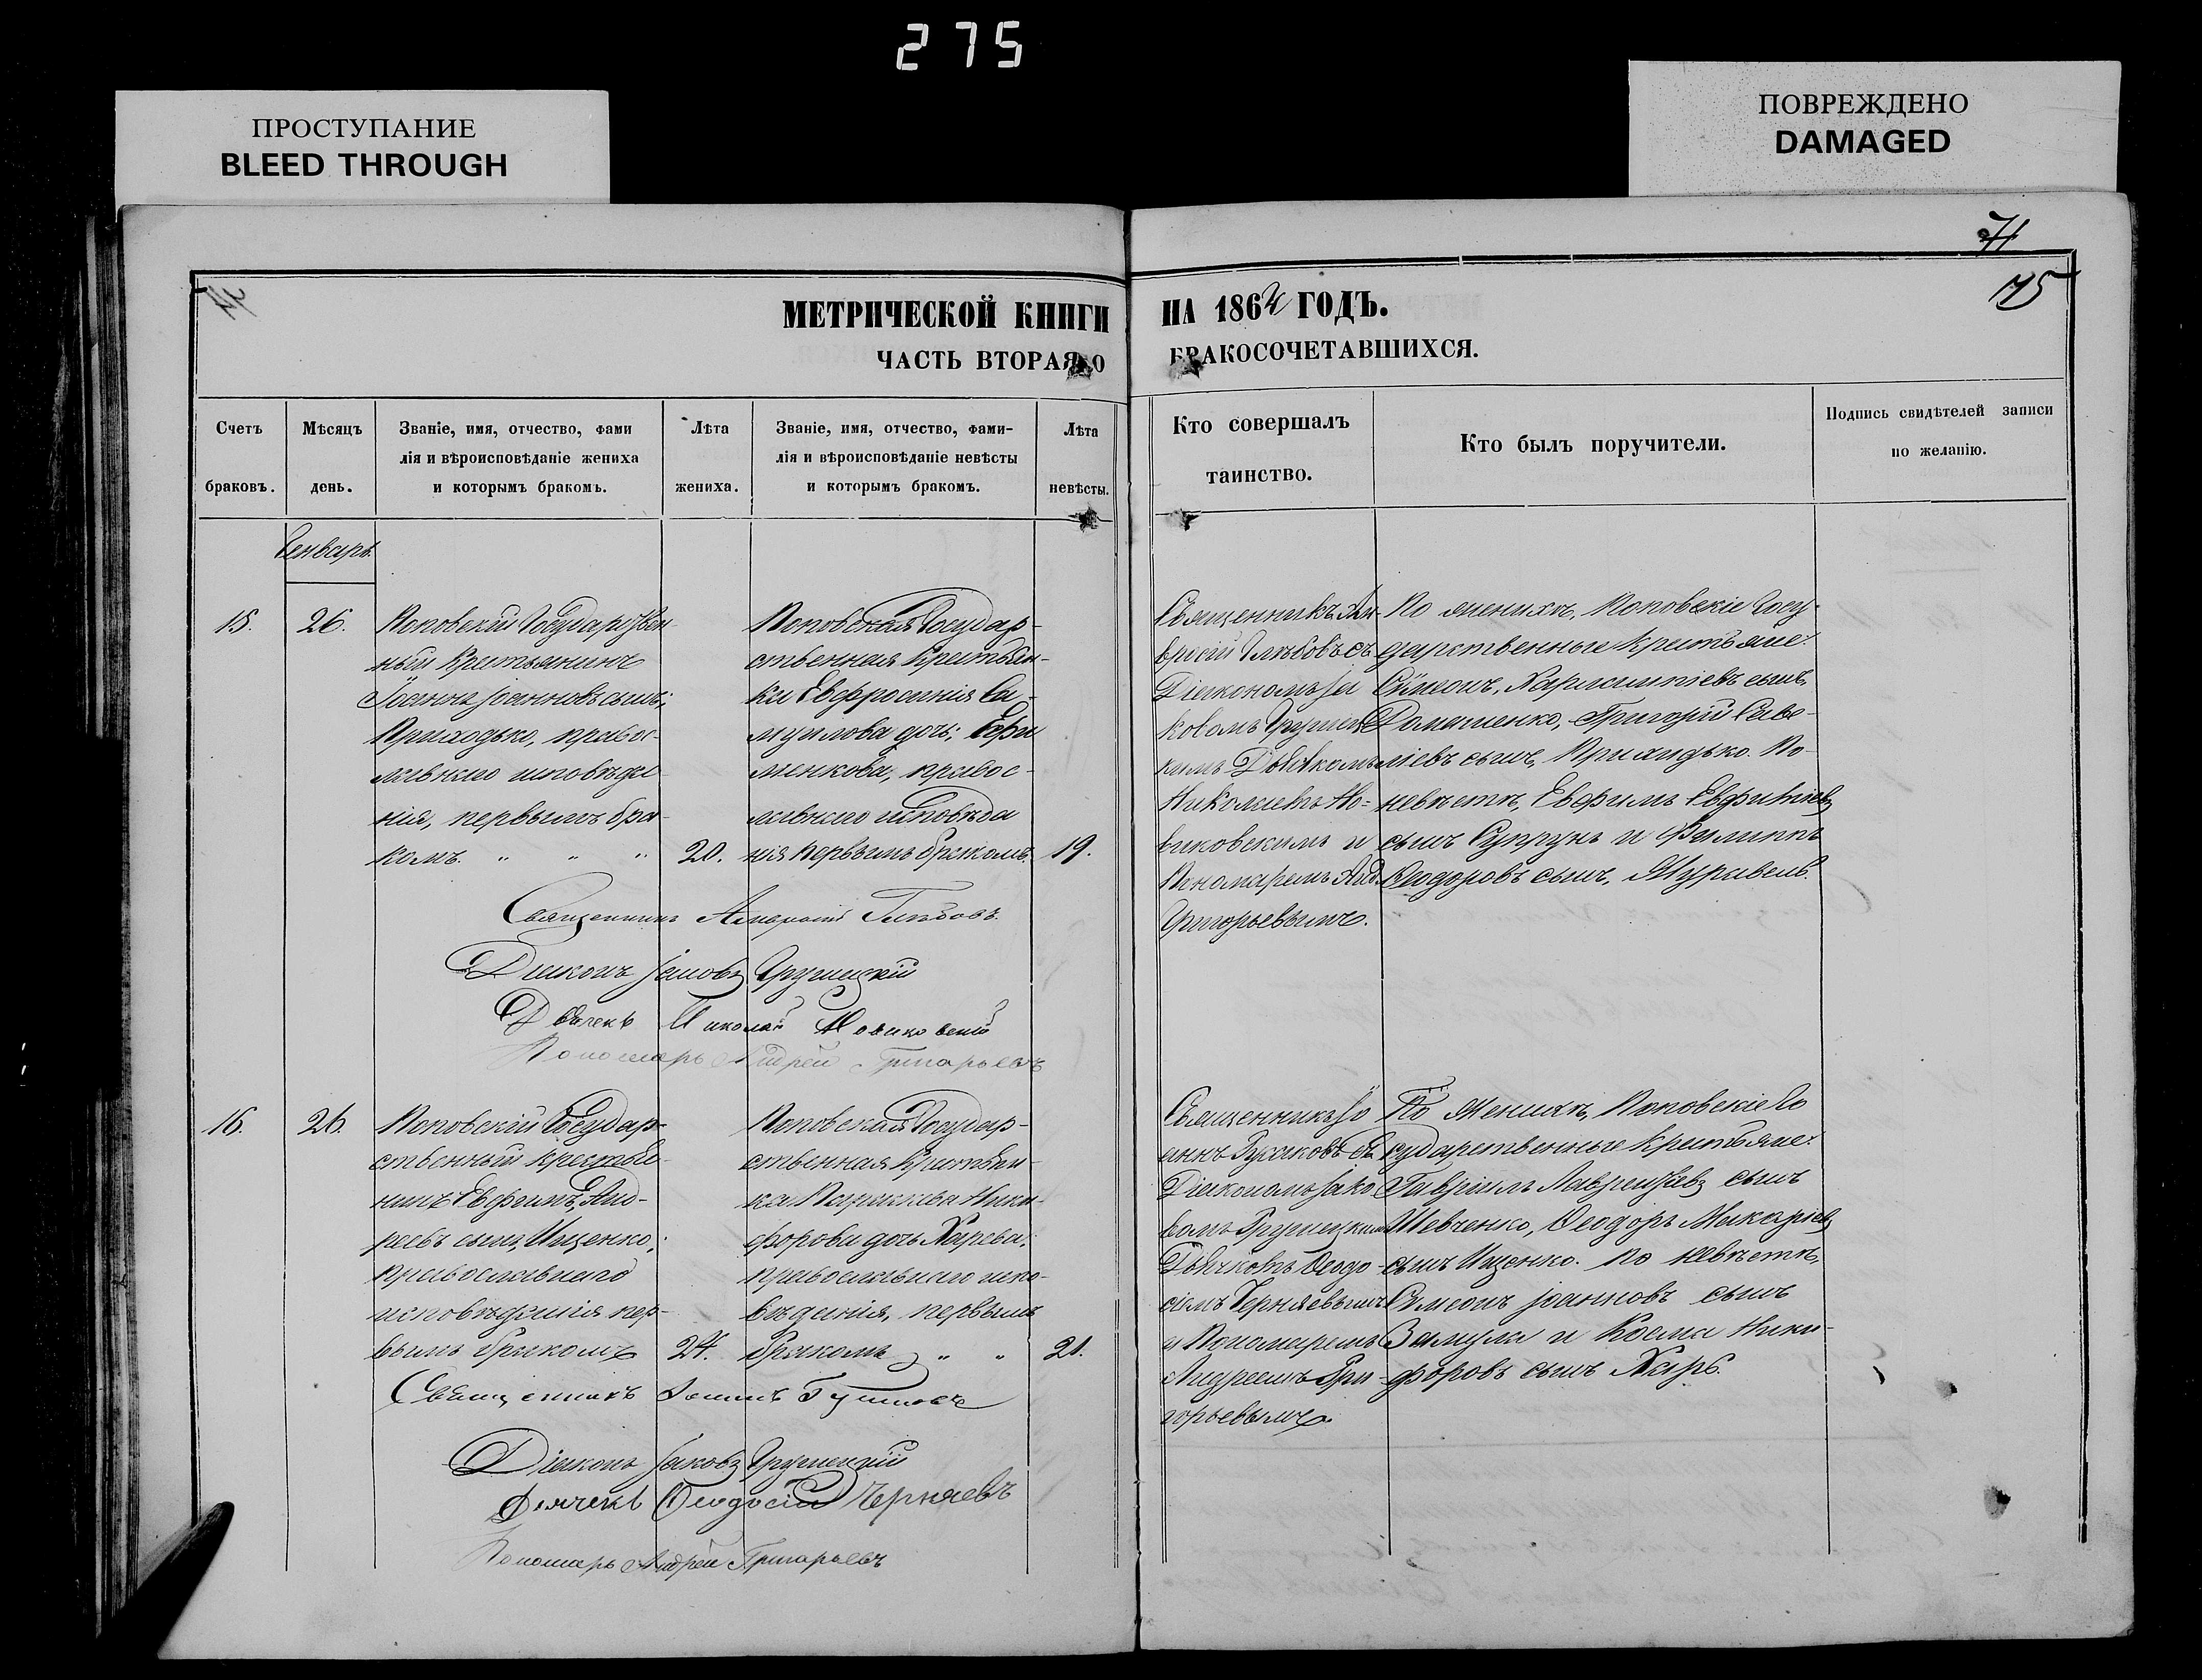 275
ПРОСТУПАНИЕ
BLEED THROUGH
ПОВРЕЖДЕНО
DAMAGED
71
75
МЕТРИЧЕСКОЙ КНИГИ НА 1864 ГОДЪ.
ЧАСТЬ ВТОРАЯ, О БРАКОСОЧЕТАВШИХСЯ.
Счетъ браковъ.
Мѣсяцъ день.
Званіе, имя, отчество, фами
лія и вѣроисповѣданіе жениха
и которымъ бракомъ.
Лѣта жениха.
Званіе, имя, отчество, фами-
лія и вѣроисповѣданіе невѣсты
и которымъ бракомъ.
Лѣта невѣсты.
Кто совершалъ
таинство.
Кто былъ поручители.
Подпись свидѣтелей записи
по желанію.
Генварь
15.
26.
Поповскій Государствен-
ный Крестьянинъ
Іоаннъ Іоанновъ сынъ,
Приходько, правос-
лавнаго исповѣда-
нія, первымъ бра-
комъ. " " "
20.
Поповская Государ-
ственная Крестьян-
ка Евфросинія Са-
муилова дочь; Ефи
менкова, правос-
лавнаго исповѣда
нія первымъ бракомъ.
19.
Священникъ Ам-
вросій Глѣбовъ съ
Діакономъ Іа
ковомъ Грушец
кимъ Дьячкомъ
Николаемъ Но-
виковскимъ и
Пономаремъ Анд.
Григорьевымъ.
По женихѣ, Поповскіе Госу-
дарственные Крестьяне:
Сѵмеонъ, Харлампіевъ сынъ,
Домашенко, Григорій Саве-
ліевъ сынъ, Приходько. По
невѣстѣ, Евфимъ Евфиміевъ
сынъ Супрунъ и Филиппъ
Ѳеодоровъ сынъ, Журавель.
Священникъ Амвросій Глѣбовъ.
Діаконъ Іаковъ Грушецкій
Дьячекъ Николай Новиковскій
Пономарь Андрей Григорьевъ
16.
26.
Поповскій Государ-
ственный крестья-
нинъ Евфимъ, Анд-
реевъ сынъ, Ищенко,
православнаго
исповѣданія пер-
вымъ бракомъ
24.
Поповская Государ-
ственная Крестьян-
ка Параскева Ники-
форова дочь Харева,
православнаго испо-
вѣданія, первымъ
бракомъ " "
21.
Священникъ Іо
аннъ съ
Діакономъ Іако
вомъ Грушецкимъ
Дьячкомъ Ѳеодо-
сіемъ Черняевымъ
и Пономаремъ
Андреемъ Гри-
горьевымъ.
По Женихѣ, Поповскіе Го
сударственные Крестьяне:
Гавріилъ Лаврентіевъ сынъ
Шевченко, Ѳеодоръ Макаріевъ
сынъ Ищенко. По невѣстѣ,
Сѵмеонъ Іоанновъ сынъ
Замула и Косма Ники-
форовъ сынъ Харь.
Священникъ Іоаннъ
Діаконъ Іаковъ Грушецкій
Дьячекъ Ѳеодосій Черняевъ
Пономарь Андрей Григорьевъ